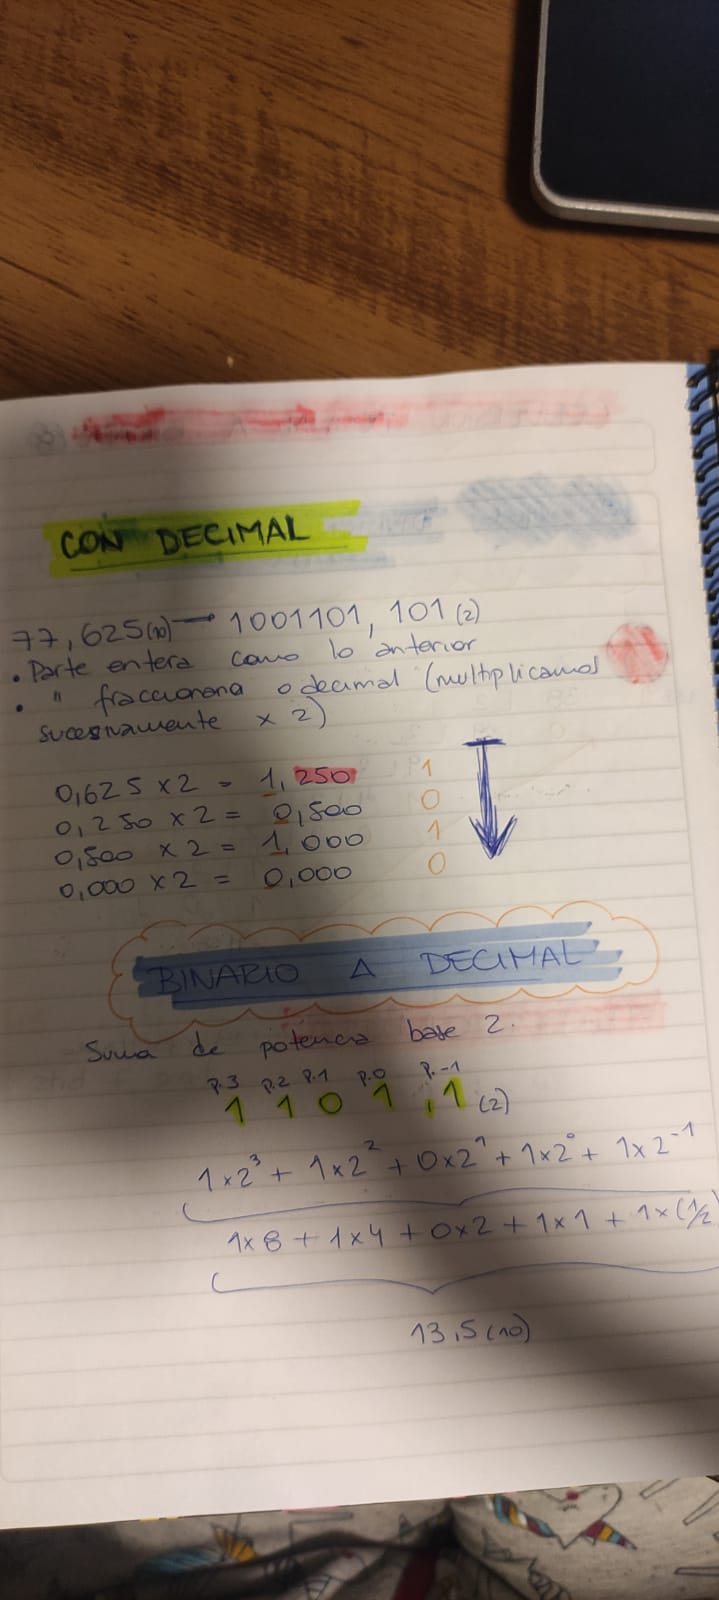 CON DECIMAL
77,625(10) → 1001101, 101 (2)
• Parte entera como lo anterior
• " fraccionaria o decimal (multiplicamos
sucesivamente x 2)
0,625 x 2 = 1, 250 1
0, 250 x 2 = 0,500 0
0,500 x 2 = 1,000 1
0,000 x 2 = 0,000 0
BINARIO A DECIMAL
Suma de potencia base 2.
P.3 P.2 P.1 P.0 P.-1
1 1 0 1 ,1 (2)
1x2³ + 1x2² + 0x2¹ + 1x2⁰ + 1x2⁻¹
1x8 + 1x4 + 0x2 + 1x1 + 1x(1/2
13,5(10)